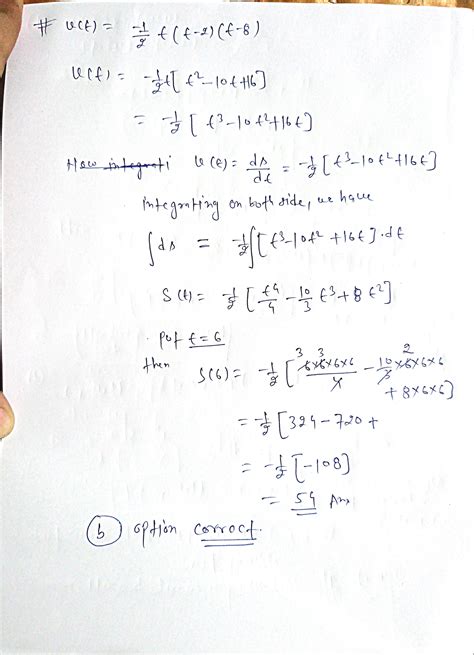 # v(t) = -1/2 t(t-2)(t-8)
v(t) = -1/2 t[t²-10t+16]
= -1/2 [t³-10t²+16t]
Now integrati v(t) = ds/dt = -1/2 [t³-10t²+16t]
integrating on both side, we have
∫ds = -1/2 ∫[t³-10t²+16t].dt
S(t) = -1/2 [t⁴/4 - 10/3 t³ + 8t²]
put t=6
then S(6) = -1/2 [6×6×6×6/4 - 10/3×6×6×6 + 8×6×6]
= -1/2 [324-720+
= -1/2 [-108]
= 54 Ans
(b) option correct.